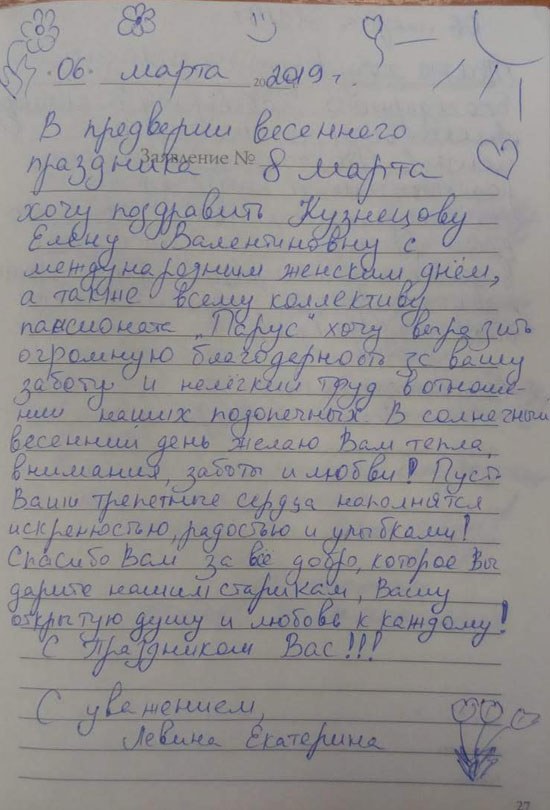 06 марта 2019 г.
В предверии весеннего
Заявление №
праздника 8 марта
хочу поздравить Кузнецову
Елену Валентиновну с
международним женским днём,
а также всему коллективу
пансионата "Парус" хочу выразить
огромную благодерность за вашу
заботу и нелёгкий труд в отноше-
нии наших подопечных. В солнечный
весенний день желаю Вам тепла,
внимания, заботы и любви! Пусть
Ваши трепетные сердца наполнятся
искреностью, радостью и улыбками!
Спасибо Вам за всё добро, которое Вы
дарите нашим старикам, Вашу
открытую душу и любовь к каждому!
С Праздником Вас!!!
С уважением,
Левина Екатерина
27